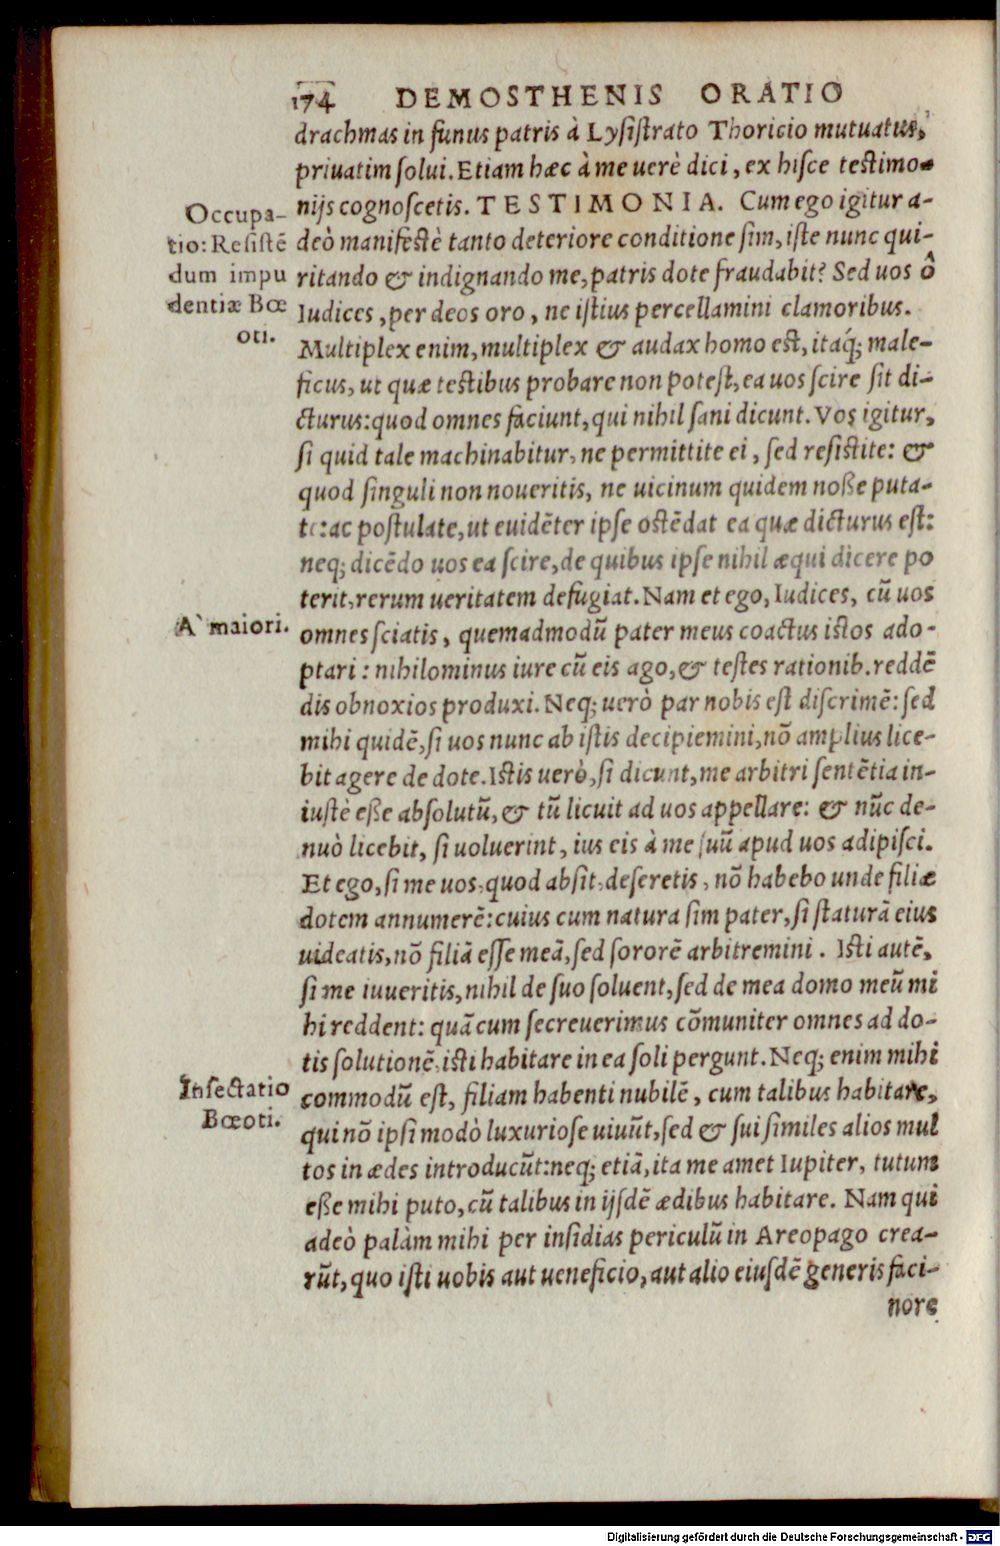 174 DEMOSTHENIS ORATIO
drachmas in funus patris à Lysistrato Thoricio mutuatus,
priuatim solui. Etiam hæc à me uerè dici, ex hisce testimo-
nijs cognoscetis. TESTIMONIA. Cum ego igitur a-
deò manifestè tanto deteriore conditione sim, iste nunc qui-
ritando & indignando me, patris dote fraudabit? Sed uos ô
Iudices, per deos oro, ne istius percellamini clamoribus.
Multiplex enim, multiplex & audax homo est, itaq́; male-
ficus, ut quæ testibus probare non potest, ea uos scire sit di-
cturus: quod omnes faciunt, qui nihil sani dicunt. Vos igitur,
si quid tale machinabitur, ne permittite ei, sed resistite: &
quod singuli non noueritis, ne uicinum quidem noße puta-
te: ac postulate, ut euidẽter ipse ostẽdat ea quæ dicturus est:
neq; dicẽdo uos ea scire, de quibus ipse nihil æqui dicere po
terit, rerum ueritatem defugiat. Nam et ego, Iudices, cũ uos
omnes sciatis, quemadmodũ pater meus coactus istos ado-
ptari: nihilominus iure cũ eis ago, & testes rationib. reddẽ
dis obnoxios produxi. Neq; uerò par nobis est discrimẽ: sed
mihi quidẽ, si uos nunc ab istis decipiemini, nõ amplius lice-
bit agere de dote. Istis uerò, si dicunt, me arbitri sentẽtia in-
iustè eße absolutũ, & tũ licuit ad uos appellare: & nũc de-
nuò licebit, si uoluerint, ius eis à me suũ apud uos adipisci.
Et ego, si me uos, quod absit, deseretis, nõ habebo unde filiæ
dotem annumerẽ: cuius cum natura sim pater, si staturã eius
uideatis, nõ filiã esse meã, sed sororẽ arbitremini. Isti autẽ,
si me iuueritis, nihil de suo soluent, sed de mea domo meũ mi
hi reddent: quã cum secreuerimus cõmuniter omnes ad do-
tis solutionẽ, isti habitare in ea soli pergunt. Neq; enim mihi
commodũ est, filiam habenti nubilẽ, cum talibus habitare,
qui nõ ipsi modò luxuriose uiuũt, sed & sui similes alios mul
tos in ædes introducũt: neq; etiã, ita me amet Iupiter, tutum
eße mihi puto, cũ talibus in ijsdẽ ædibus habitare. Nam qui
adeò palàm mihi per insidias periculũ in Areopago crea-
rũt, quo isti uobis aut ueneficio, aut alio eiusdẽ generis faci-
nore
Occupa-
tio: Resistẽ
dum impu
dentiæ Bœ
oti.
A` maiori.
Insectatio
Bœoti.
Digitalisierung gefördert durch die Deutsche Forschungsgemeinschaft - DFG